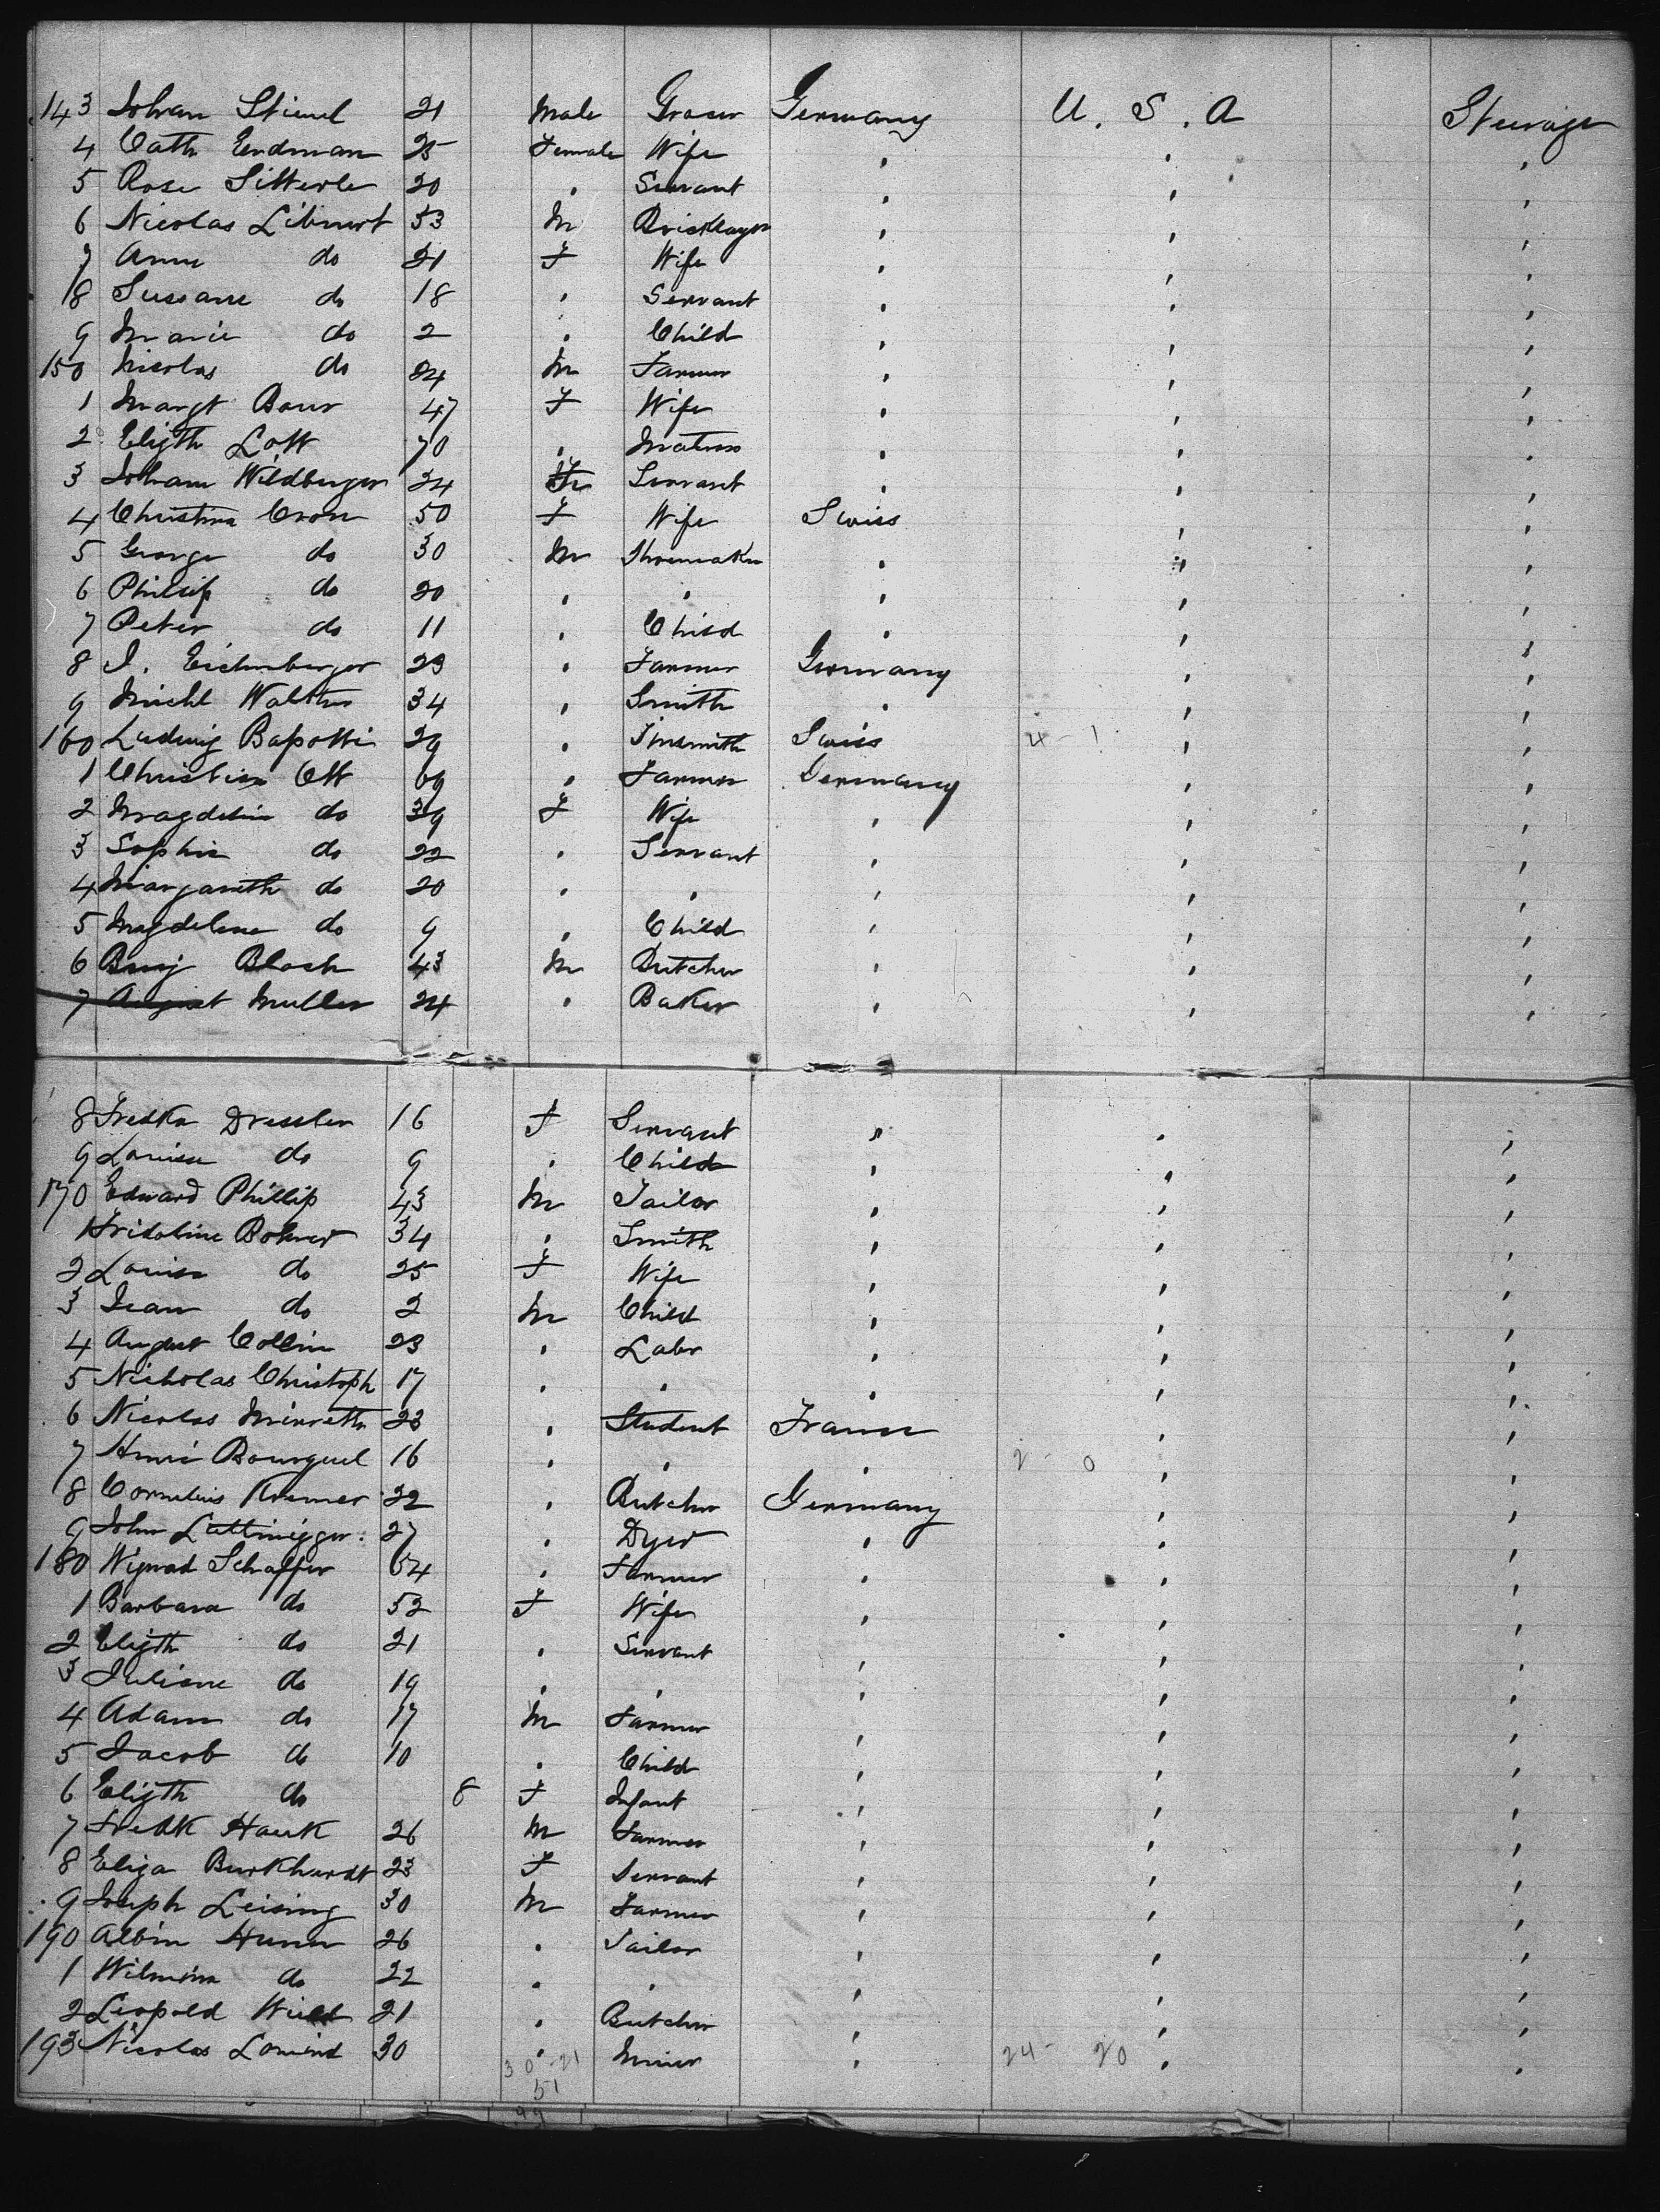 143 Johan Stiemel 21 Male Grocer Germany U. S. A Steerage
4 Cath Erdman 25 Female Wife , , ,
5 Rose Sitterle 20 , Servant , , ,
6 Nicolas Libinert 53 M Bricklayer , , ,
7 Anna do 21 F Wife , , ,
8 Sussane do 18 , Servant , , ,
9 Marie do 2 , Child , , ,
150 Nicolas do 24 M Farmer , , ,
1 Margt Bour 47 F Wife , , ,
2 Elizth Lott 70 , Matron , , ,
3 Johann Wildberger 24 Servant , , ,
4 Christina Cron 50 F Wife Swiss , ,
5 George do 30 M Shoemaker , , ,
6 Philip do 20 , , , , ,
7 Peter do 11 , Child , , ,
8 J. Eichenberger 23 , Farmer Germany , ,
9 Michl Walther 34 , Smith , , ,
160 Ludwig Bapotti 29 , Tinsmith Swiss 4 - 1 , ,
1 Christian Ott 69 , Farmer Germany , ,
2 Magdelin do 39 F Wife , , ,
3 Sophie do 22 , Servant , , ,
4 Margareth do 20 , , , , ,
5 Magdelena do 9 , Child , , ,
6 Benj Bloch 43 M Butcher , , ,
7 August Muller 24 , Baker , , ,
8 Fredka Dressler 16 F Servant , , ,
9 Louisa do 9 , Child , , ,
170 Edward Phillip 43 M Tailor , , ,
1 Fridoline Bohner 34 , Smith , , ,
2 Louisa do 25 F Wife , , ,
3 Jean do 2 M Child , , ,
4 August Collin 23 , Labr , , ,
5 Nicholas Christoph 17 , , , , ,
6 Nicolas Minreth 23 , Student France , ,
7 Henri Bourguel 16 , , , 2 - 0 , ,
8 Cornelius Kremer 22 , Butcher Germany , ,
9 John Luttinigger 27 , Dyer , , ,
180 Wignad Schaffer 54 , Farmer , , ,
1 Barbara do 52 F Wife , , ,
2 Elizth do 21 , Servant , , ,
3 Juliane do 19 , , , , ,
4 Adam do 17 M Farmer , , ,
5 Jacob do 10 , Child , , ,
6 Elizth do 8 F Infant , , ,
7 Fredk Hauk 26 M Farmer , , ,
8 Eliza Burkhardt 23 F Servant , , ,
9 Joseph Leising 30 M Farmer , , ,
190 Albin Hunn 26 , Tailor , , ,
1 Wilmina do 22 , , , , ,
2 Leopold Wield 21 , Butcher , , ,
193 Nicolas Lomind 30 , Miner , 24 - 20 , ,
30 - 21
51
99